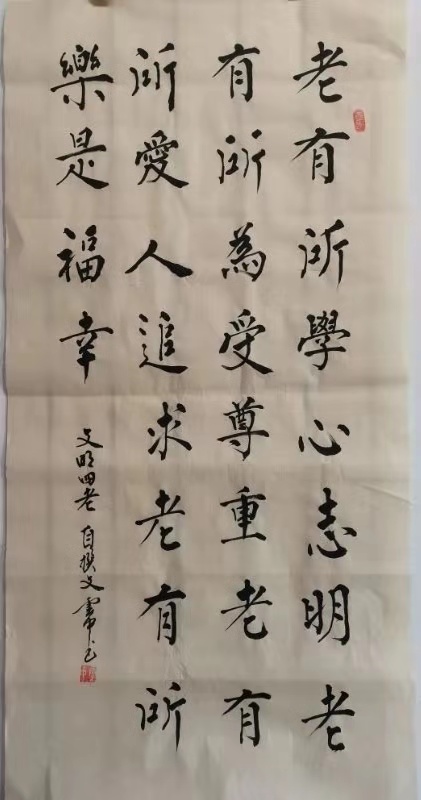 老有所學心志明老
有所為受尊重老有
所愛人追求老有所
樂是福幸
文明四老 自撰文